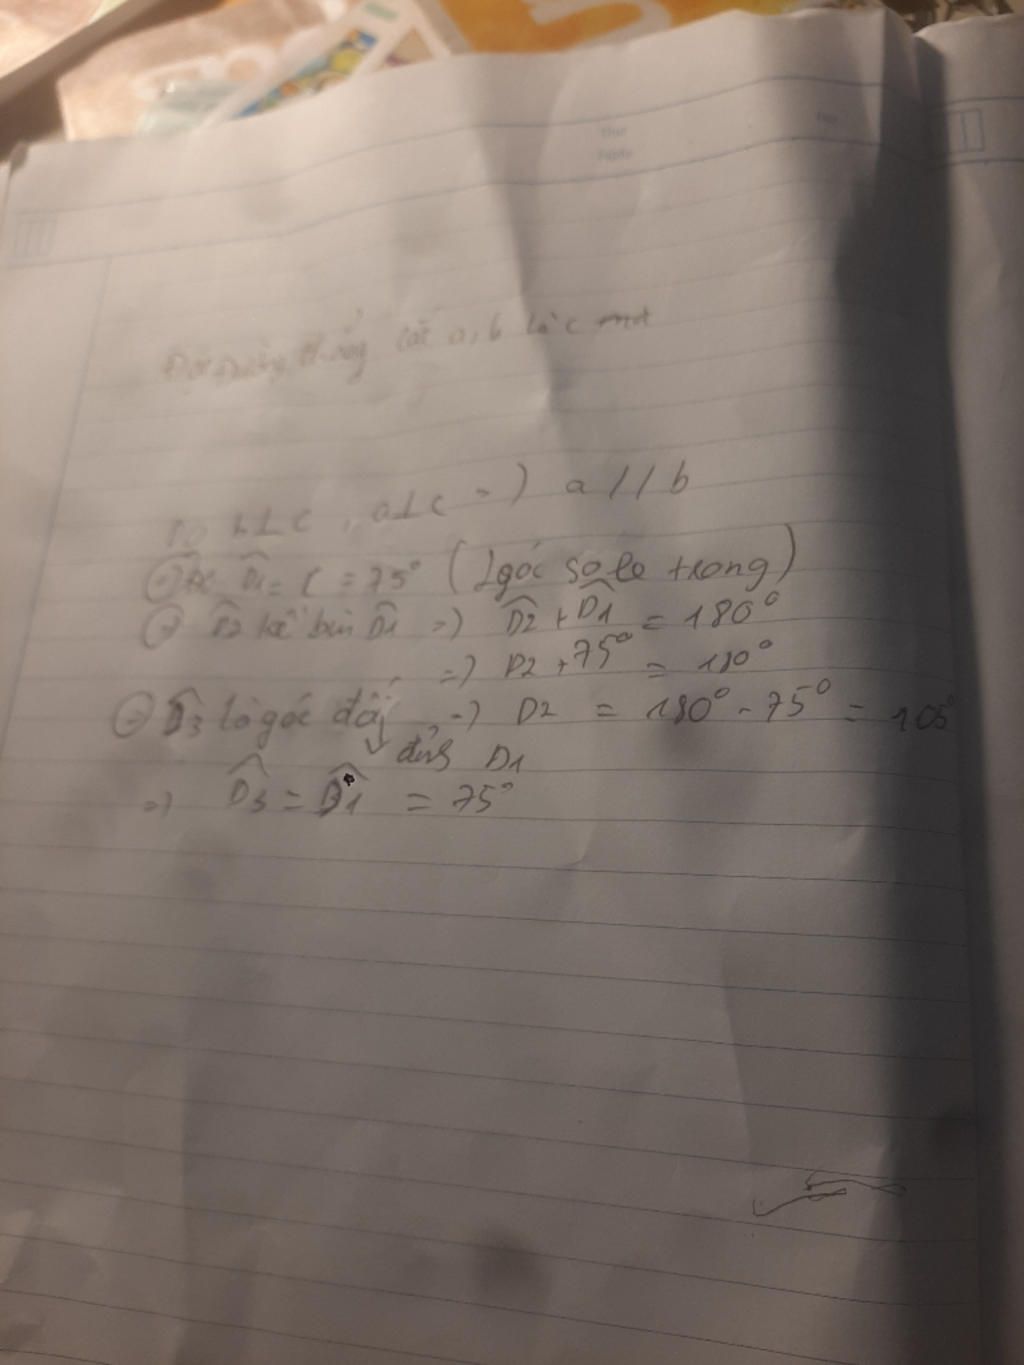 Thứ
Ngày
No.
Đặt Đường thẳng cắt a, b là c
Do b⊥c , a⊥c =) a // b
D̂1 = C = 75° (2 góc so le trong)
D̂2 kề bù D̂1 =) D̂2 + D̂1 = 180°
=) D2 + 75° = 180°
=) D2 = 180° - 75° = 105°
D̂3 là góc đối
đỉnh D1
=) D̂3 = D̂1 = 75°